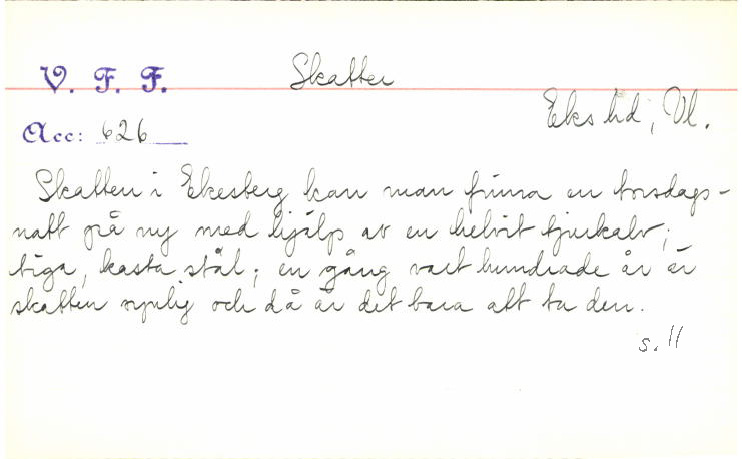 V. F. F.
Skatter
Ekshd, Vl.
Acc: 626
Skatten i Ekesberg kan man finna en torsdags-
natt på ny med hjälp av en helvit tjurkalv;
tiga, kasta stål; en gång vart hundrade år är
skatten synlig och då är det bara att ta den.
s. 11